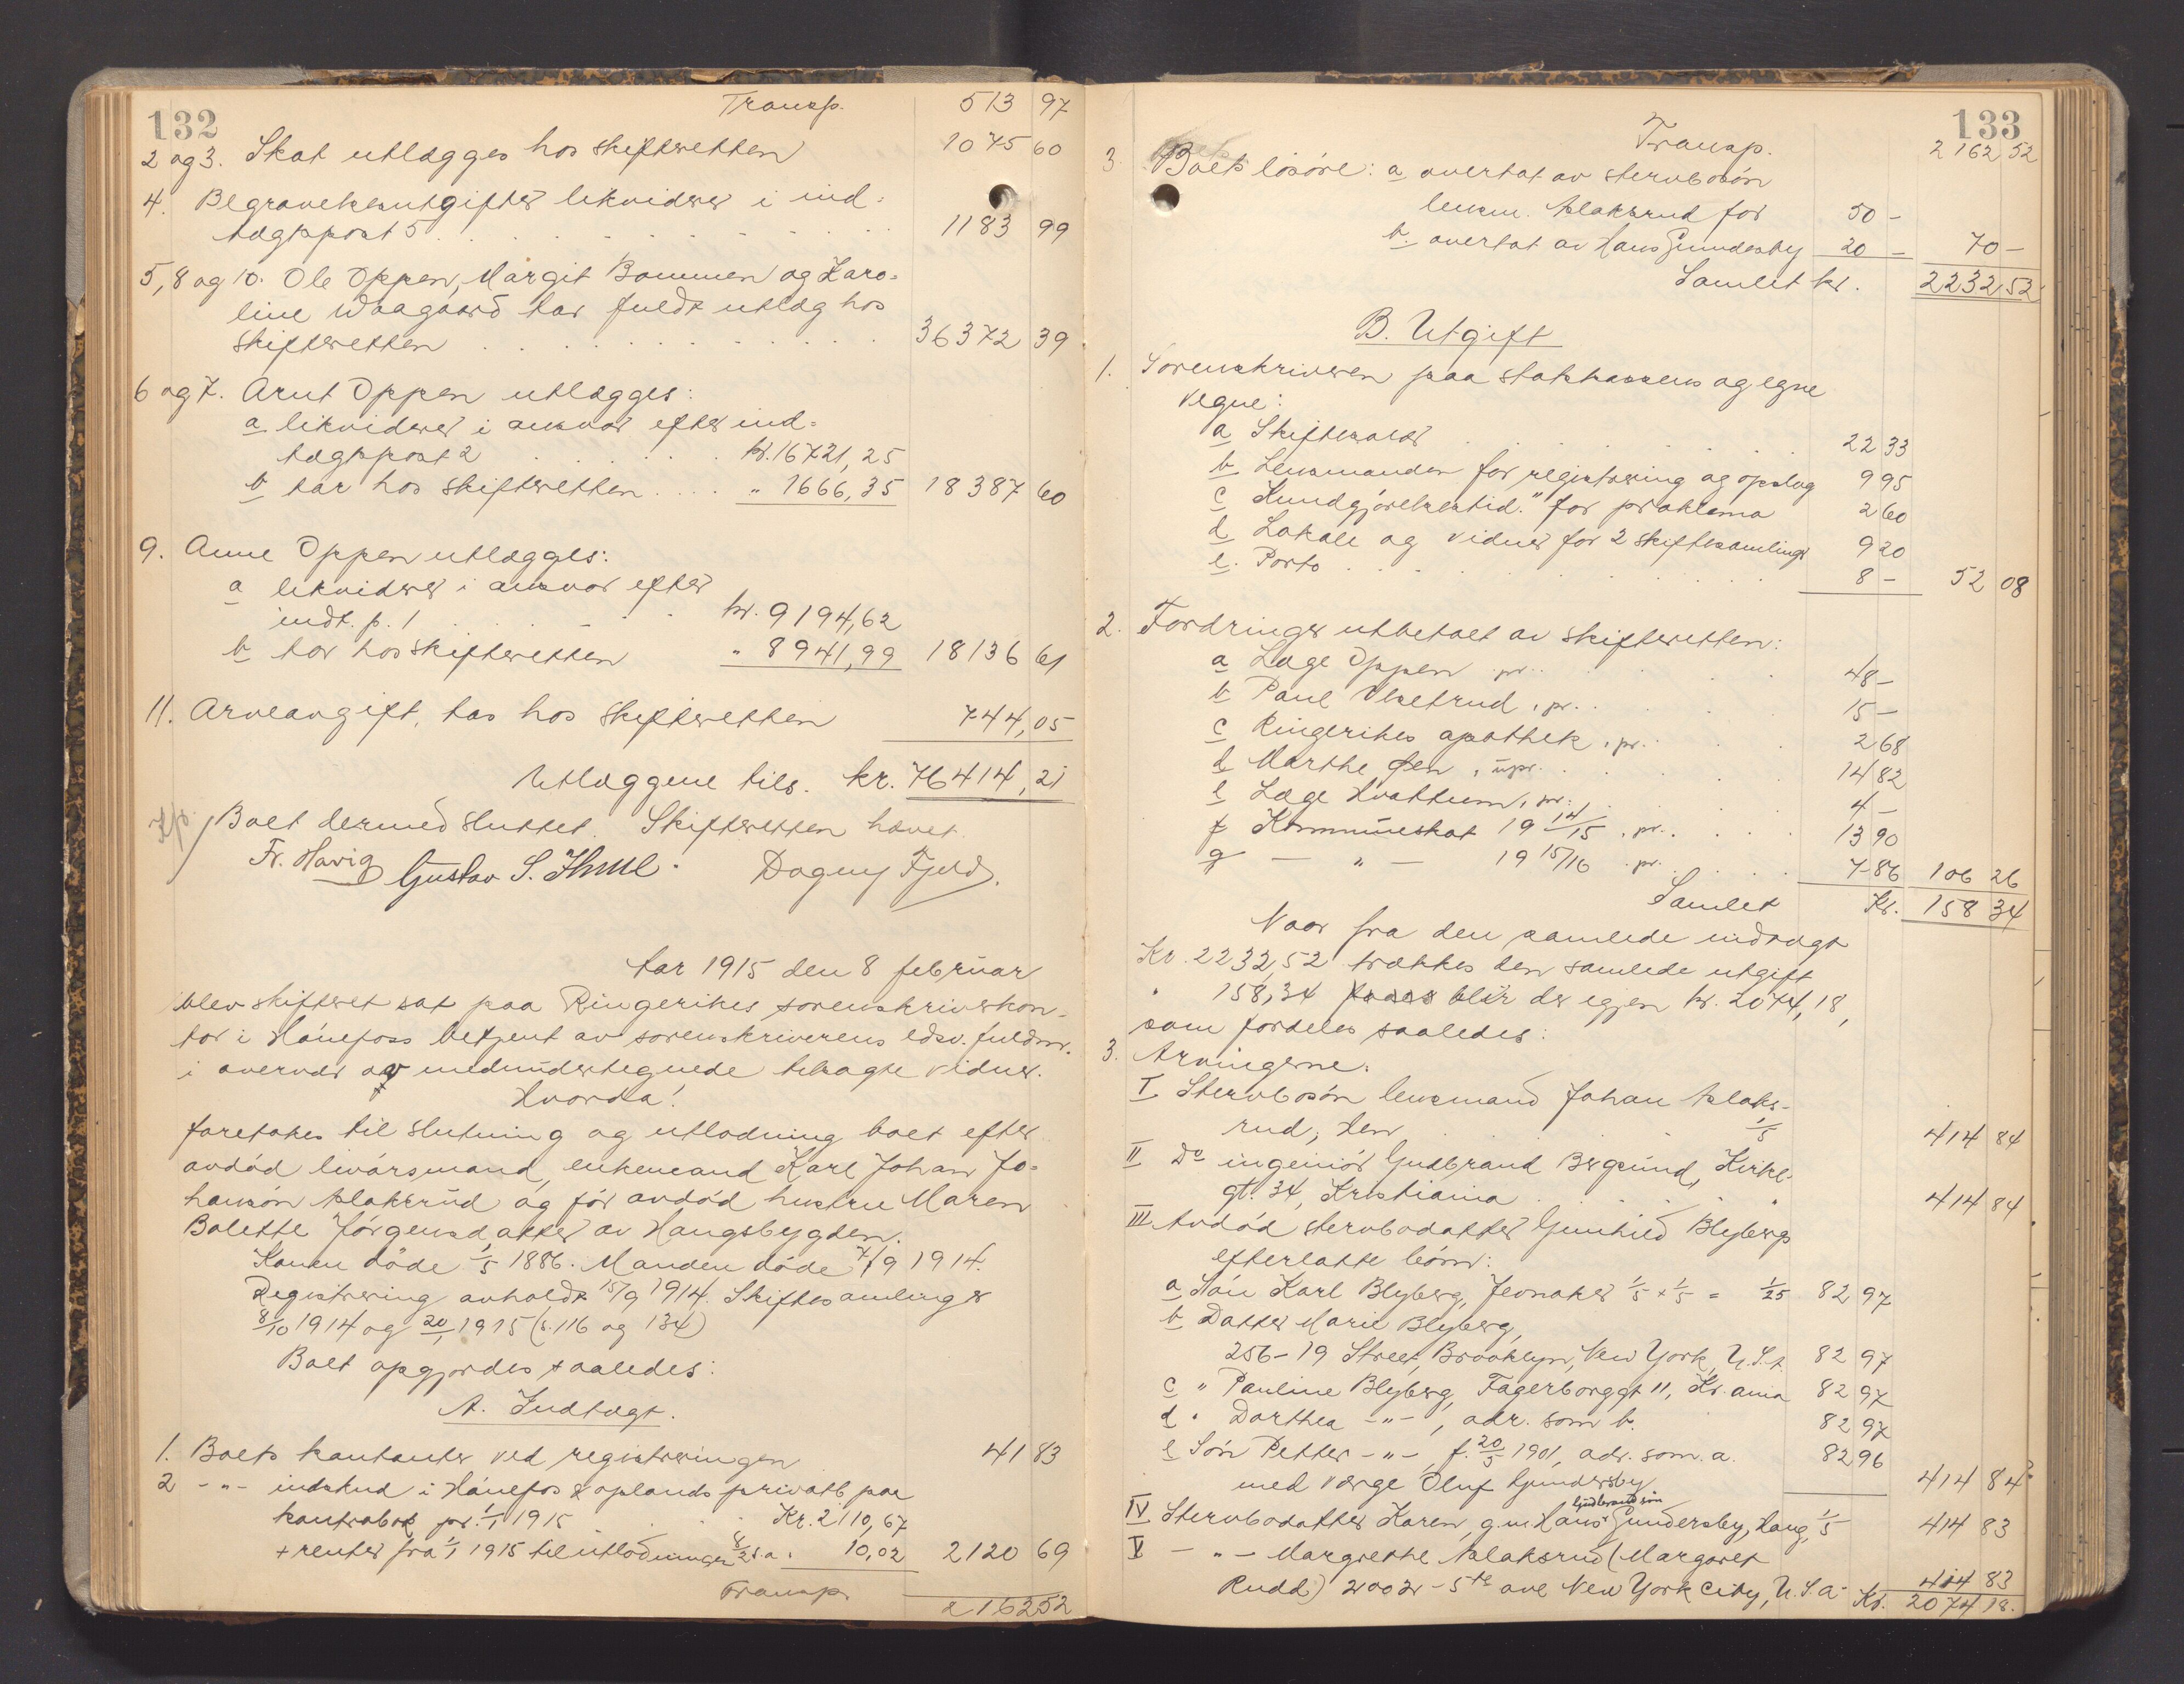 132
Transp. 513 97
2 og 3. Skat utlægges hos skifteretten 1075 60
4. Begravelsesutgifter likviderer i ind-
tægtspost 5 1183 99
5, 8 og 10. Ole Oppen, Margit Bommen og Karo-
line Waagaard tar fuldt utlæg hos
skifteretten 36372 39
6 og 7. Arnt Oppen utlægges:
a likviderer i ansvar efter ind-
tægtspost 2 kr. 16721,25
b tar hos skifteretten " 1666,35 18387 60
9. Anne Oppen utlægges:
a likviderer i ansvar efter
indt. p. 1 kr. 9194,62
b tar hos skifteretten " 8941,99 18136 61
11. Arveavgift, tas hos skifteretten 744,05
Utlæggene tils. kr. 76414,21
Boet dermed sluttet. Skifteretten hævet.
Fr. Havig Gustav S. Dagny Fjeld.
Aar 1915 den 8 februar
blev skifteret sat paa Ringerikes sorenskriverkon-
tor i Hönefoss betjent av sorenskriverens edsv. fuldm.
i overvær av medundertegnede tilkaldte vidner.
Hvorda!
foretokes til slutning og utlodning boet efter
avdöd livörsmand, enkemand Karl Johan Jo-
hansön Klaksrud og för avdöd hustru Maren
Bolette Jörgensdatter av Haugsbygden.
Konen döde 1/5 1886. Manden döde 7/9 1914.
Registrering avholdt 15/9 1914. Skiftesamlinger
8/10 1914 og 20/1 1915 (s. 116 og 134)
Boet opgjordes saaledes:
A. Indtægt.
1. Boets kontanter ved registreringen 41 83
2 -"- indskud i Hönefos & oplands privatb. paa
kontrabok pr. 1/1 1915 Kr. 2110,67
+ renter fra 1/1 1915 til utlodningen 8/2 s.a. 10,02 2120 69
Transp. 2162 52
133
Transp. 2162 52
3. Boets lösöre: a overtat av stervbosön
lensm. Klaksrud for 50 -
b. overtat av Hans Gundersby 20 - 70 -
Samlet kr. 2232 52
B. Utgift
1. Sorenskriveren paa statskassens og egne
vegne:
a Skiftesalær 22 33
b Lensmanden for registrering og opslag 9 95
c Kundgjörelsestid." for proklama 2 60
d Lokale og vidner for 2 skiftesamlinger 9 20
e. Porto 8 - 52 08
2. Fordringer utbetalt av skifteretten:
a Læge Oppen pr. 48 -
b Paul Olsetrud, pr. 15 -
c Ringerikes apothek, pr. 2 68
d Marthe Öen, upr. 14 82
e Læge Kvattum, pr. 4 -
f Kommuneskat 19 14/15, pr. 13 90
g - " - 19 15/16 pr. 7 86 106 26
Samlet Kr. 158 34
Naar fra den samlede indtægt
Kr. 2232,52 trækkes den samlede utgift
" 158,34 blir der igjen kr. 2074,18,
som fordeles saaledes:
3. Arvingerne.
I Stervbosön lensmand Johan Klaks-
rud, Hen 1/5 414 84
II Do ingeniör Gudbrand Berglund, Kirke-
gt. 34, Kristiania " 414 84
III Avdöd stervbodatter Gunhild Blybergs
efterlatte börn:
a Sön Karl Blyberg, Jevnaker 1/5 x 1/5 = 1/25 82 97
b Datter Marie Blyberg,
256 - 19 Street, Brooklyn, New York, U.S.A 82 97
c " Pauline Blyberg, Fagerborggt 11, Kr.ania 82 97
d " Dorthea -"-, adr. som b. 82 97
e Sön Petter -"-, f. 20/5 1901, adr. som a. 82 96
med værge Oluf Gundersby 414 84
IV Stervbodatter Karen, g.m. Hans Gudbrandsön Gundersby, Haug, 1/5 414 83
V -"- Margrethe Klaksrud (Margaret
Rudd) 2002 - 5th ave New York City, U.S.A. 414 83
Kr. 2074 18.